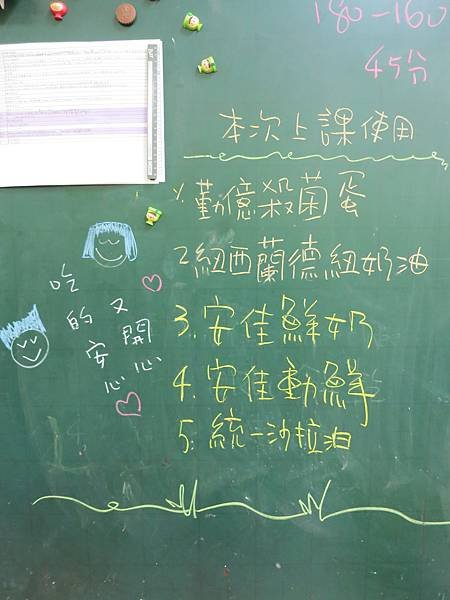 180-160
45分
本次上課使用
1.勤億殺菌蛋
2.紐西蘭德紐奶油
3.安佳鮮奶
4.安佳動鮮
5.統一沙拉油
吃的安心
又開心